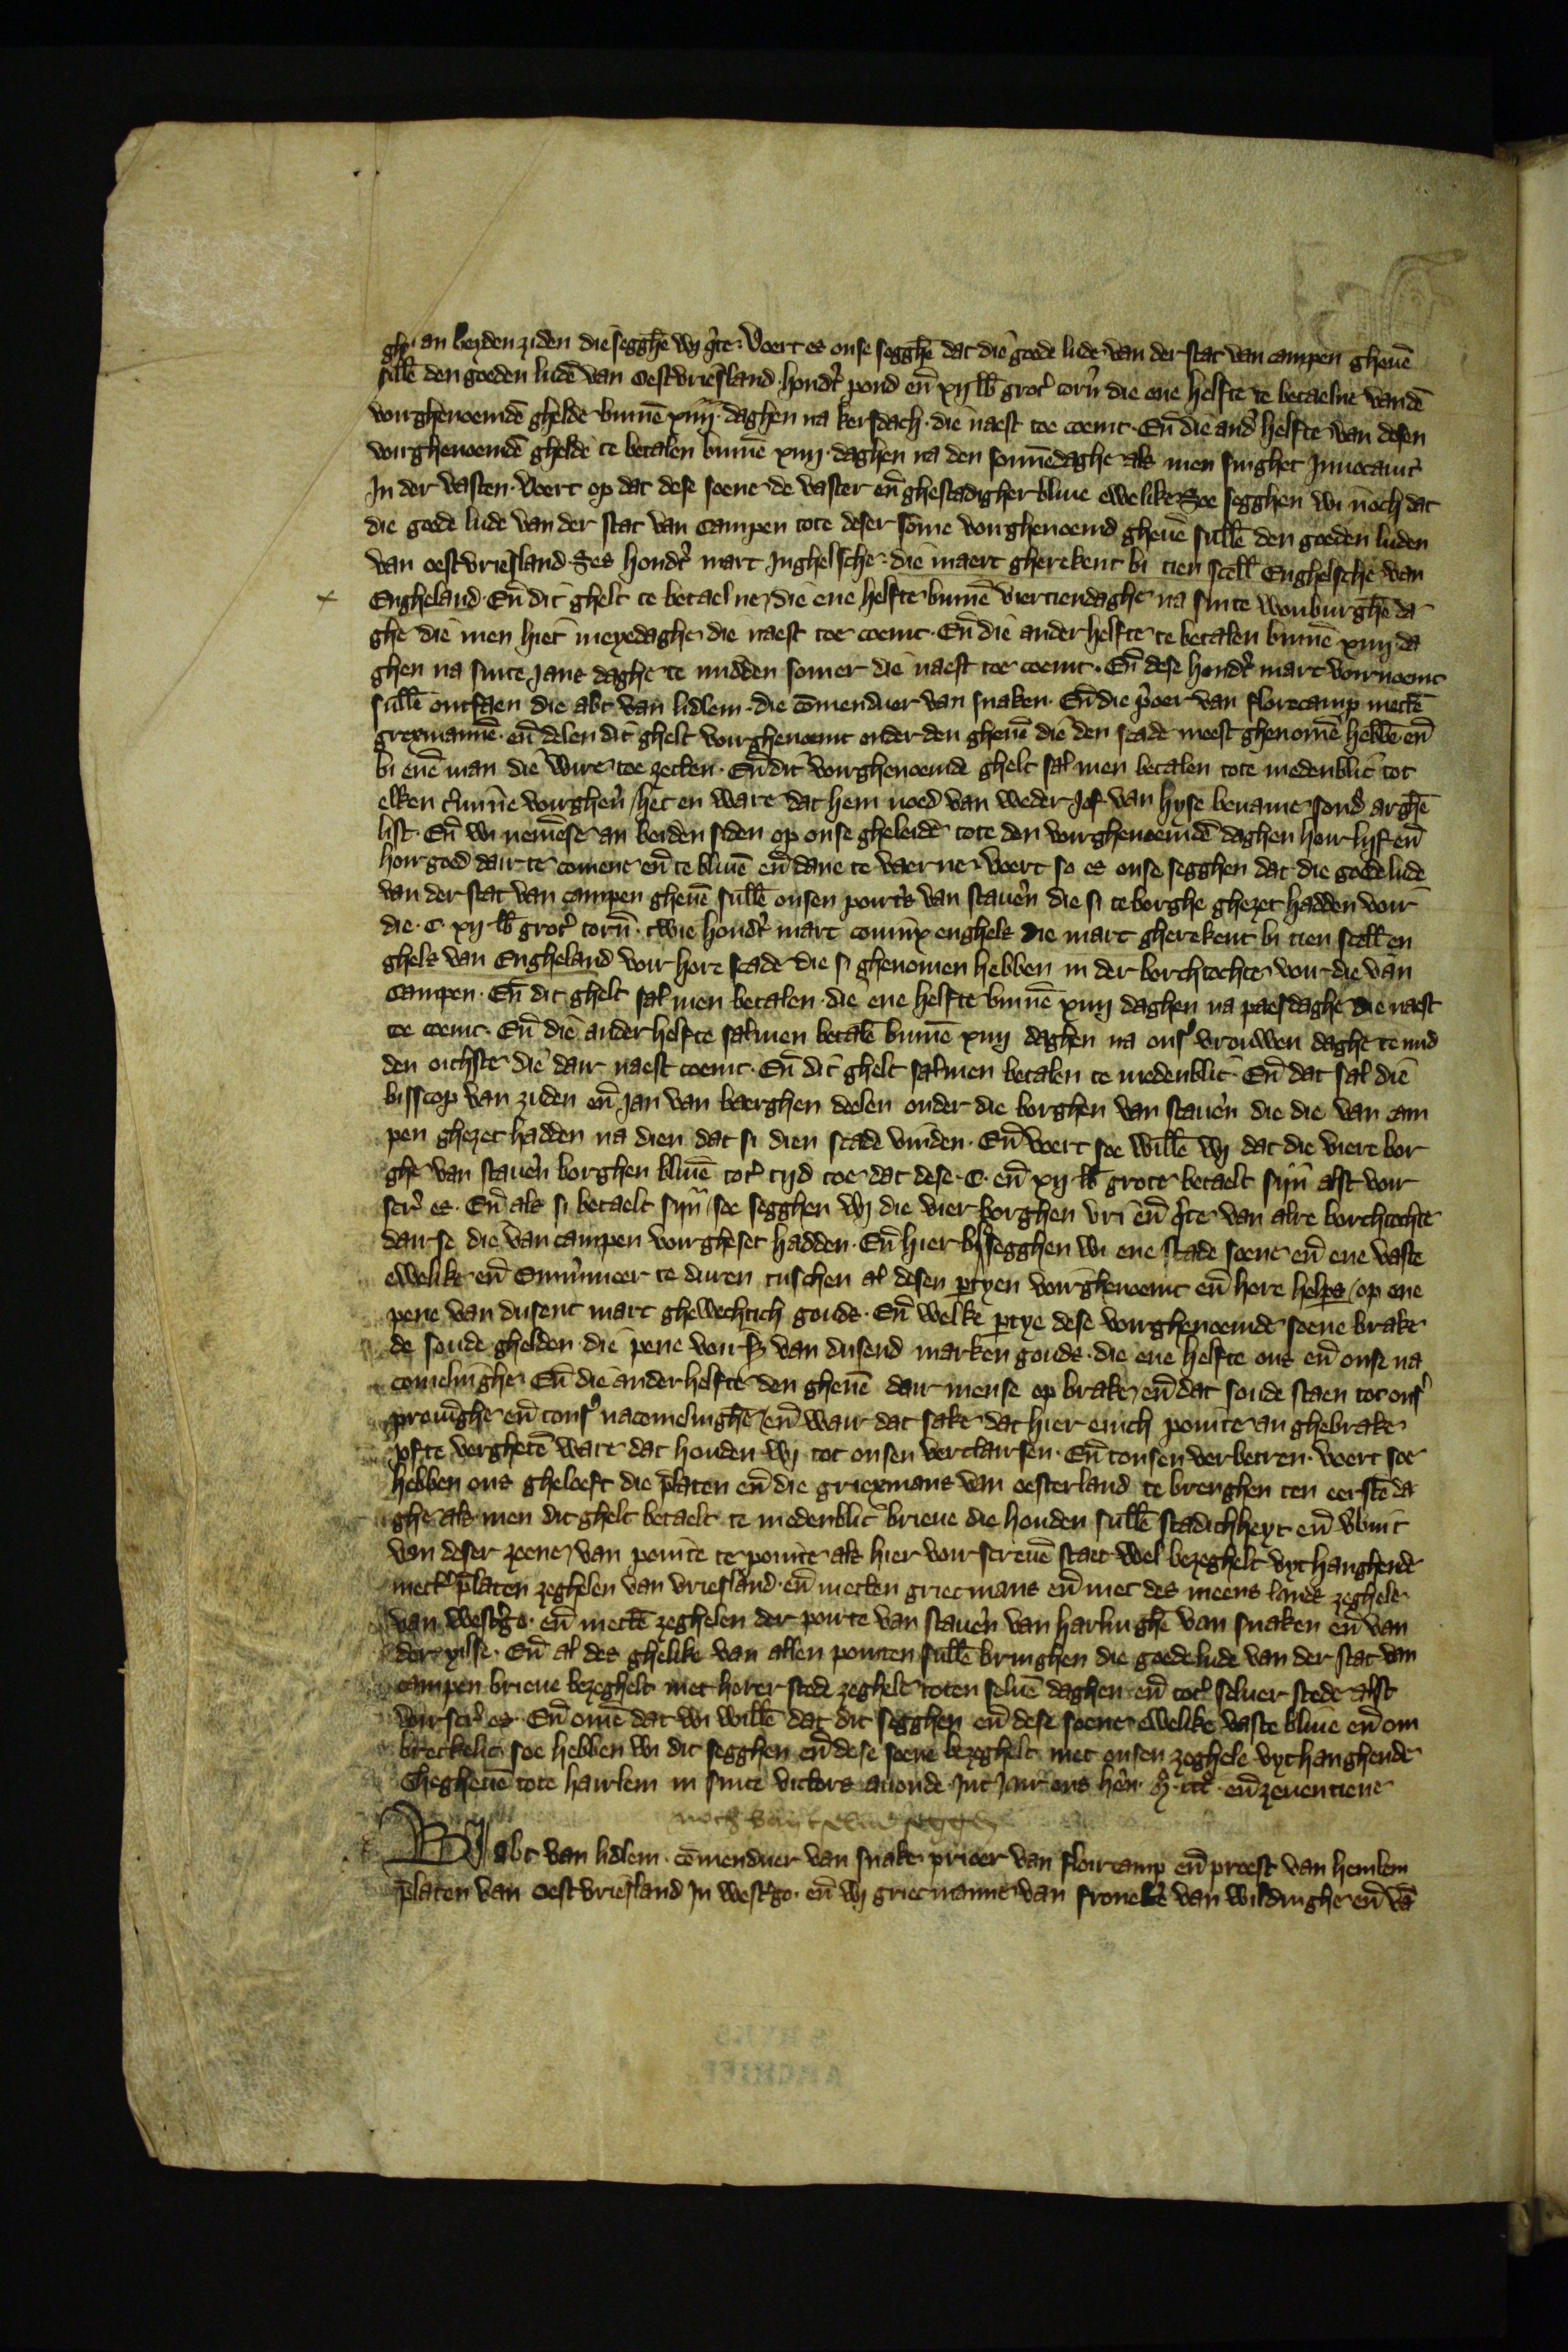 ghe an beyden ziden die segghē wy q̊te. Voert es onse segghē dat die goede lude van der stat van campen gheuē
sullē den goeden ludē van oestvriesland. hondt̓ pond en̄ xij lb̄ grot̓ torn̓ die ene helfte te betaelne vandē
vorghenoemdē ghelde binnē xiiij. daghen na kersdach. die naest toe coemt. En̄ die and̓ helfte van desen
vorghenoemdē ghelde te betalen binnē xiiij. daghen na den sonnēdaghe als men singhet Inuocauit
In der vasten. Voert op dat dese soene de vaster en̄ ghestadigher bliue ewelike Soe segghen wi noch dat
die goede lude van der stat van Campen tote deser sōme vorghenoemd gheuē sullē den goeden luden
van oestvriesland. Ses hondt̓ mart Inghelsche. die maert gherekent bi tien scell̄ Enghelsche van
Engheland. En̄ dit ghelt te betaelne, die ene helfte binnē viertiendaghe na sinte wouburghē da
ghe die men hiet meyedaghe die naest toe coemt. En̄ die ander helfte te betalen binnē xiiij. da
ghen na sinte Jans daghe te midden somer die naest toe coemt. En̄ dese hondt̓ mart vornoemt
sullē ontfaen die abt van lidlem. die cōmenduer van snaken. En̄ die p̓oer van florecamp mettē
grexmannē. en̄ delen dit ghelt vorghenoemt onder den gheuē die den scade meest ghenomē hebbē en̄
bi enē man die wire toe zetten. En̄ dit vorghenoemde ghelt sal men betalen tote medenblic tot
elken t̓minne vorghen̓ / het en ware dat hem noed van weder jof van hyse bename sond̓ arghe
list. En̄ wi nemēse an beiden siden op onse gheleide tote den vorghenoemdē daghen hoir lijf en̄
hoir goed dair te comene en̄ te bliuē en̄ dane te vaerne. Voert so es onse segghen dat die goede lude
van der stat van campen gheuē sullē onsen port̓s van stauē̓n die si te borghe ghezet hadden voir
die. C. xij lb̄ grot̓ torn̄. twie hondt̓ mart coninx enghels die mart gherekent bi tien scell̄ en
ghels van Engheland voir hore scade die si ghenomen hebben in der borchtochte voir die van
Campen. En̄ dit ghelt sal men betalen. die ene helfte binnē xiiij daghen na paesdaghe die naest
toe coemt. En̄ die ander helfte salmen betalē binnē xiiij daghen na ons̓ vrouwen daghe te mid
den oichste die dair naest coemt. En̄ dit ghelt salmen betalen te medenblic. En̄ dat sal die
bisscop van ziden en̄ Jan van baerghen deelen onder die borghen van stauē̓n die die van cam
pen ghezet hadden na dien dat si dien scade vinden. En̄ voert soe willē wy dat die viere bor
ghe van stauē̓n borghen bliuē tot̓ tijd toe dat dese. C. en̄ xij lb̄ grote betaelt sijn̄ alst voir
scr̓ es. En̄ als si betaelt sijn̄ / soe segghen wy die vier borghen vri en̄ q̊te van alre borchtochte
dair se die van campen vorgheset hadden. En̄ hier bi segghen wi ene stade soene en̄ ene vaste
ewelike en̄ Emm̄meer te duren tuschen al desen p̱tyen vorghenoemt en̄ hore help̱s / op ene
pene van dusent mart ghewechtich gouds. En̄ welke p̱tye dese vorghenoemde soene brake
de soude ghelden. die pene voirs̓ van dusend marken gouds. die ene helfte ons en̄ onse na
comelinghe. En̄ die ander helfte den gheuē dair mense op brake en̄ dat soude staen tot ons̓
prouinghe en̄ tons̓ nacomelinghē / en̄ wair dat sake dat hier enich pointe an ghebrake
ofte verghetē ware dat houden wy tot onsen verclairsen. En̄ tonsen verbetren. Voert soe
hebben ons gheloeft die p̄laten en̄ die griexmans van oesterland te brenghen ten eerstē da
ghe als men dit ghelt betaelt te medenblic brieue die houden sullē stadichheyt en̄ v̓bint
van deser zoene, van pointe te pointe als hier voir screuē staet wel bezeghelt vyt hanghende
mett̓ p̄laten zeghelen van vriesland. en̄ metten griecmans en̄ met des meens lands zeghele
van westgo. en̄ mettē zeghelen der porte van stauē̓n van harlinghē van snaken en̄ van
der ylsse. En̄ al des ghelike van allen pointen sullē bringhen die goede lude van der stat van
campen brieue bezeghelt met horer stede zeghele toten seluē daghen en̄ tot̓ seluer stede alst
voirscr̓ es. En̄ omē dat wi willē dat dit segghen en̄ dese soene ewelike vaste bliue en̄ on
breckelic. soe hebben wi dit segghen en̄ dese soene bezeghelt met onsen zeghele vythanghende
Ghegheuē tote hairlem in sinte victors auonde. Int Jair ons hē̓n. M̊. CCC̊. en̄ zeuentiene
noch vant selue seggen
Wy abt van lidlem. cōmenduer van snake prioer van floircamp en̄ proest van hemlem
p̄laten van oestvriesland In westgo. en̄ wy griecmanne van fronekē van wildinghe en̄ vā